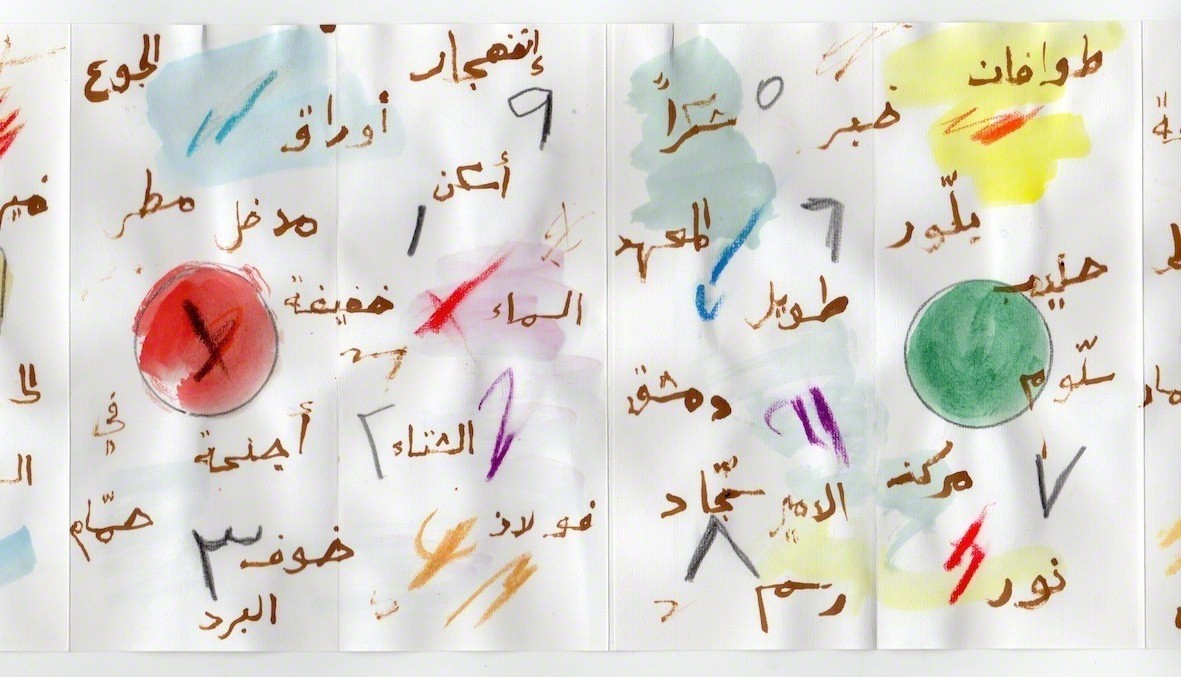 طوافات
بلّور
حليب
سلّوم
٧
نور
٥
شكراً
خبر
٦
المعهد
طويل
دمشق
سجّاد
الامير
٨
رسم
إنفجار
٩
أسكن
١
السماء
٢
الشتاء
فولاذ
الجوع
أوراق
مطر
مدخل
خفيفة
في
أجنحة
حمّام
٣
خوف
البرد